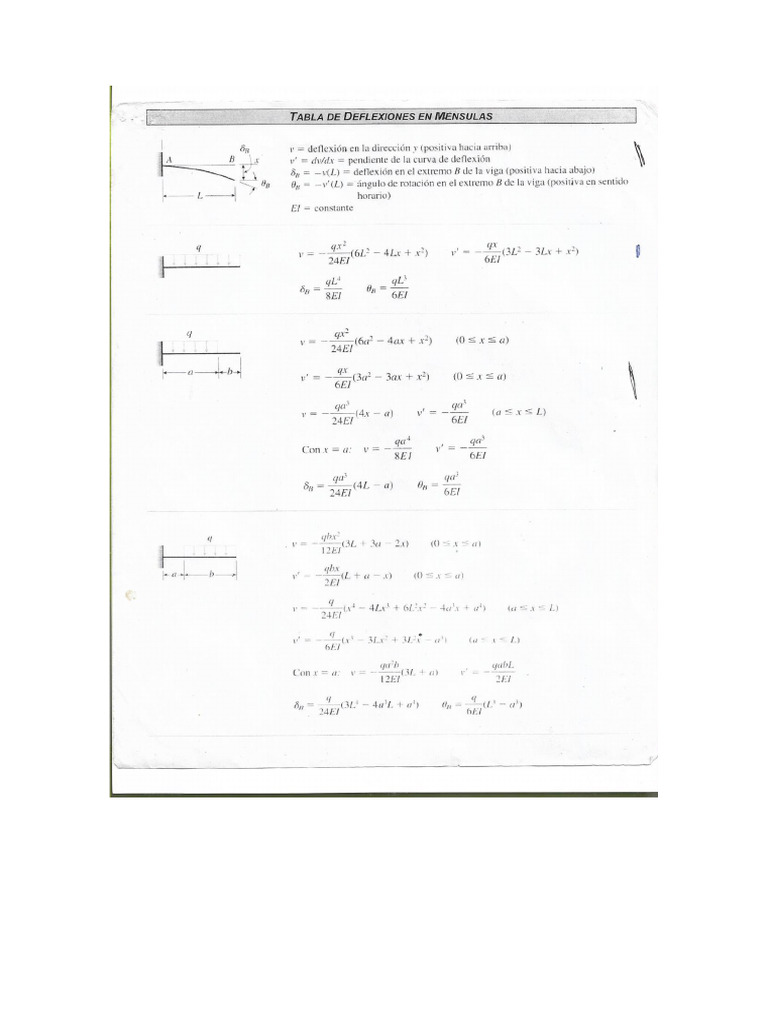 TABLA DE DEFLEXIONES EN MENSULAS
A B x δ_B θ_B L
v = deflexión en la dirección y (positiva hacia arriba)
v' = dv/dx = pendiente de la curva de deflexión
δ_B = −v(L) = deflexión en el extremo B de la viga (positiva hacia abajo)
θ_B = −v'(L) = ángulo de rotación en el extremo B de la viga (positiva en sentido
horario)
EI = constante
q
v = −qx²/24EI (6L² − 4Lx + x²) v' = −qx/6EI (3L² − 3Lx + x²)
δ_B = qL⁴/8EI θ_B = qL³/6EI
q
a b
v = −qx²/24EI (6a² − 4ax + x²) (0 ≤ x ≤ a)
v' = −qx/6EI (3a² − 3ax + x²) (0 ≤ x ≤ a)
v = −qa³/24EI (4x − a) v' = −qa³/6EI (a ≤ x ≤ L)
Con x = a: v = −qa⁴/8EI v' = −qa³/6EI
δ_B = qa³/24EI (4L − a) θ_B = qa³/6EI
q
a b
v = −qbx²/12EI (3L + 3a − 2x) (0 ≤ x ≤ a)
v' = −qbx/2EI (L + a − x) (0 ≤ x ≤ a)
v = −q/24EI (x⁴ − 4Lx³ + 6L²x² − 4a³x + a⁴) (a ≤ x ≤ L)
v' = −q/6EI (x³ − 3Lx² + 3L²x − a³) (a ≤ x ≤ L)
Con x = a: v = −qa²b/12EI (3L + a) v' = −qabL/2EI
δ_B = q/24EI (3L⁴ − 4a³L + a⁴) θ_B = q/6EI (L³ − a³)